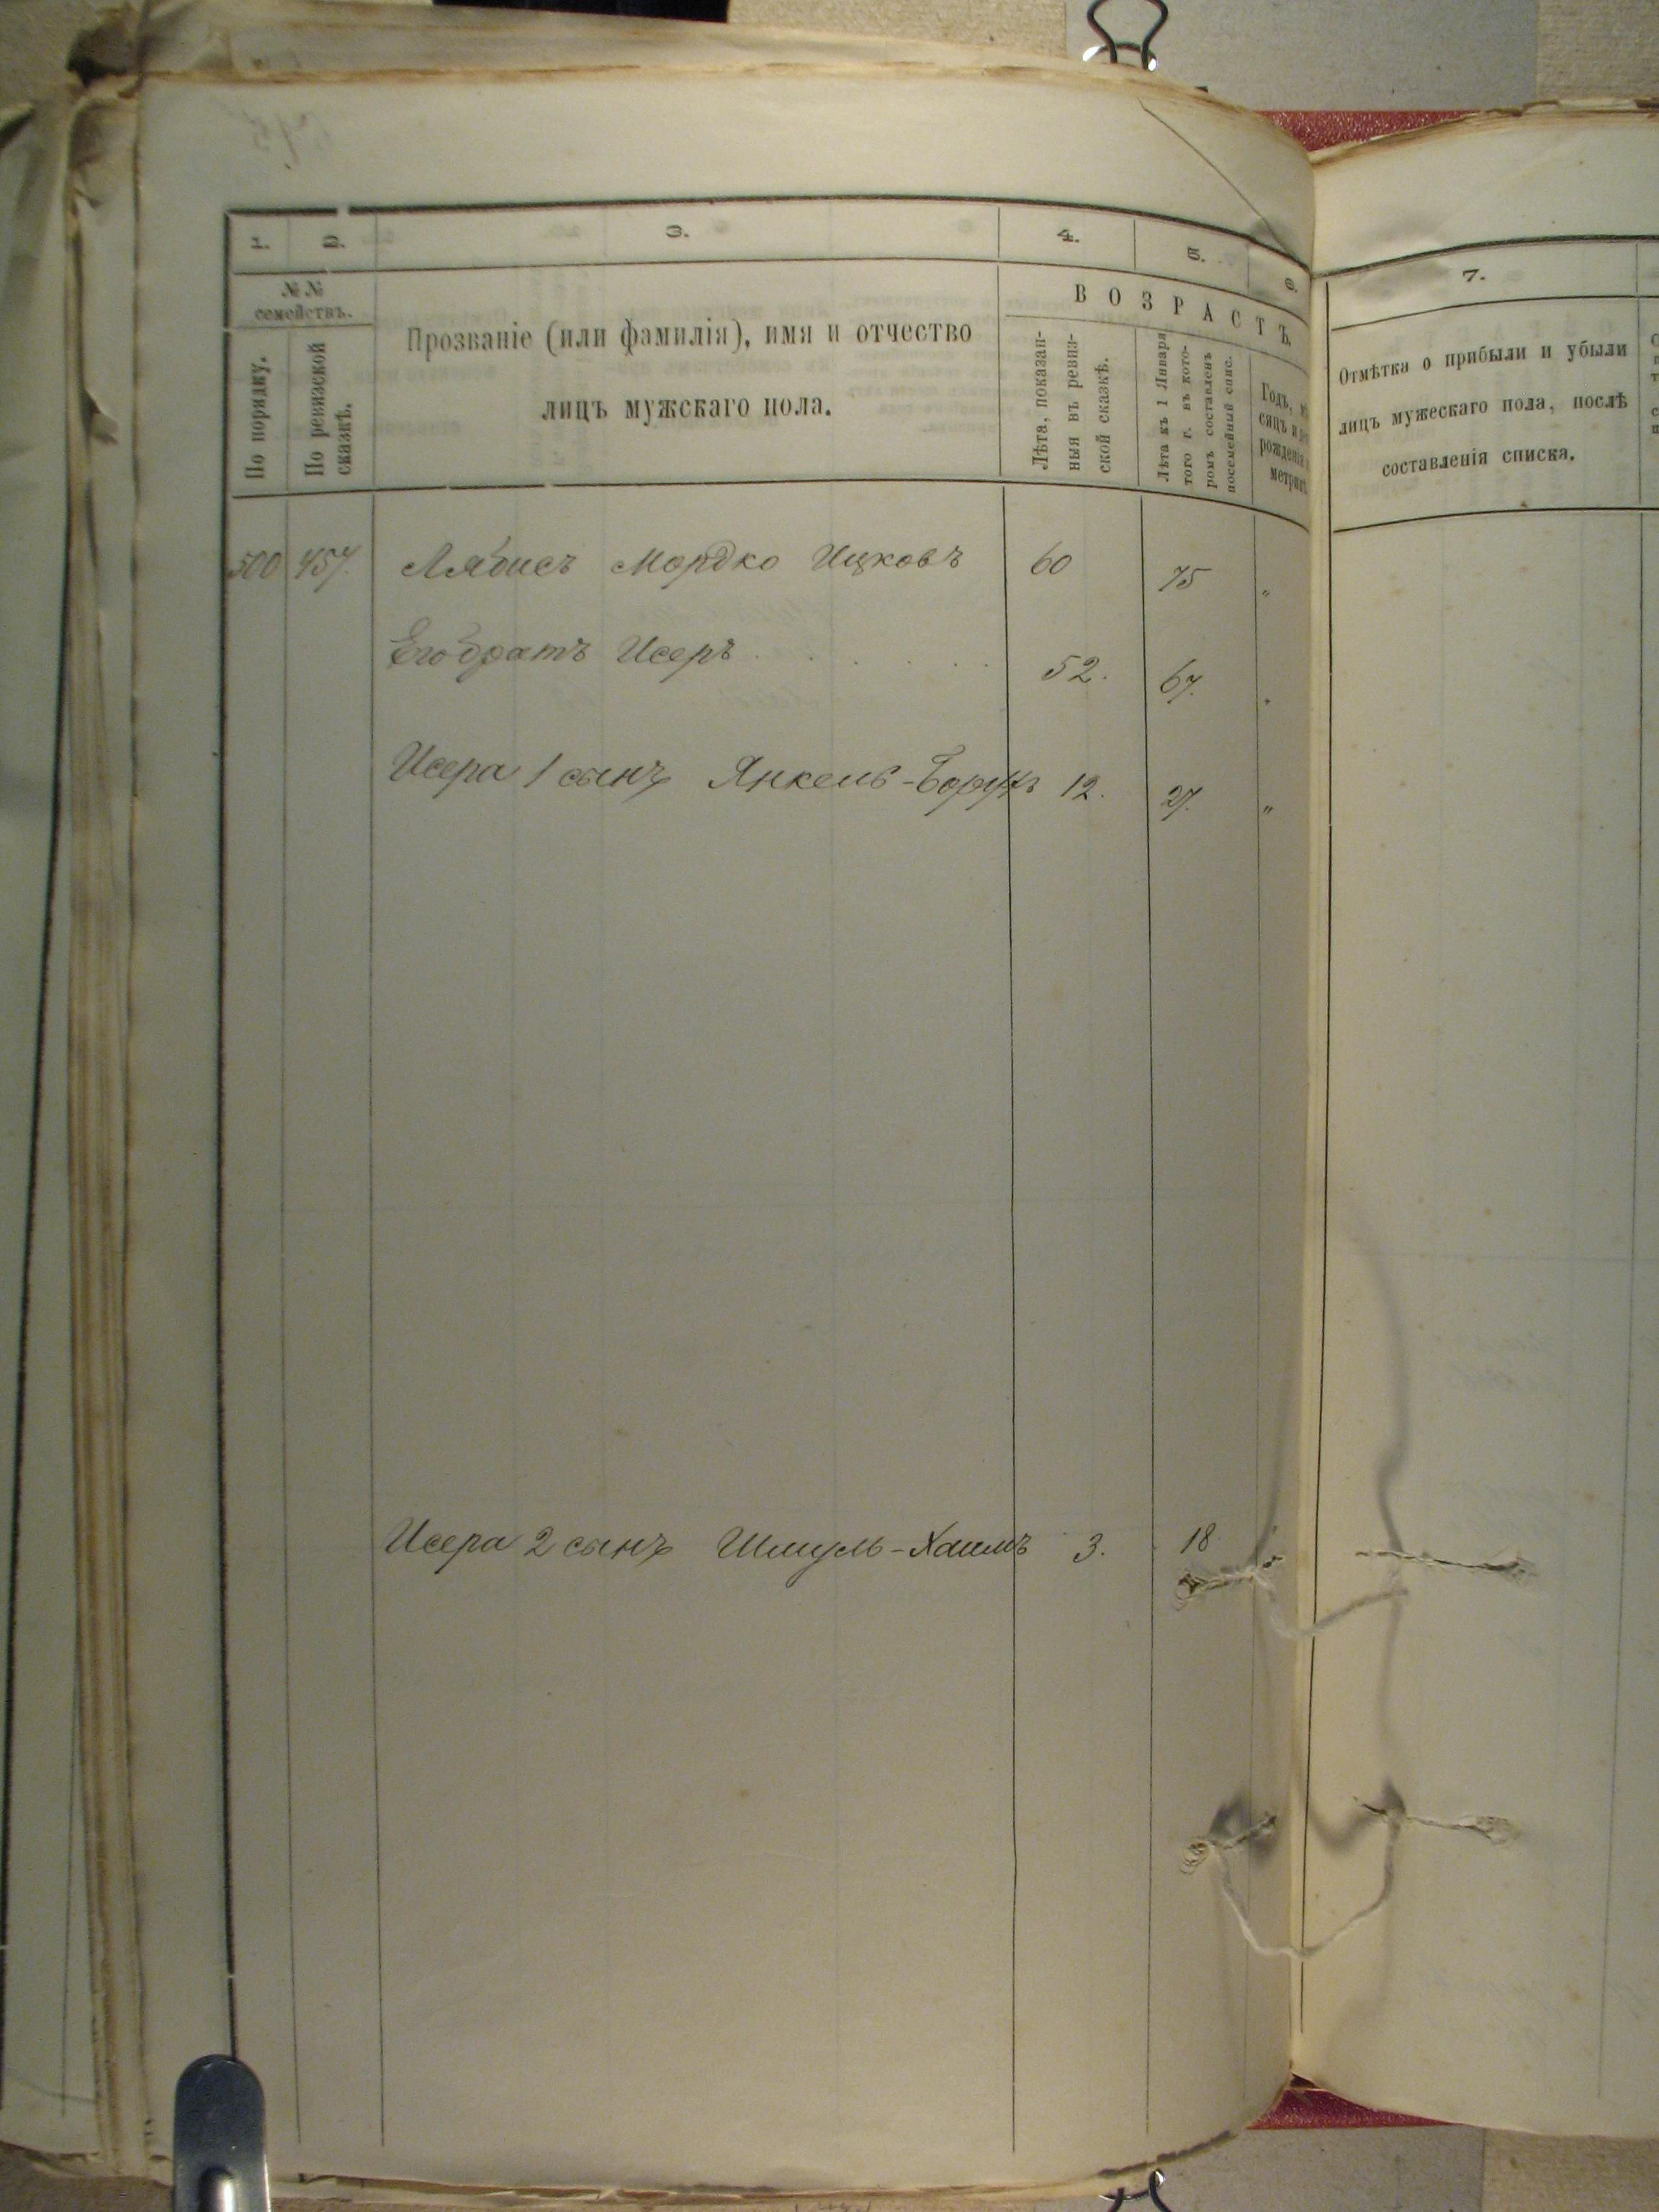 1. 2. 3. 4. 5. 6. 7.
№ №
семействъ.
По порядку.
По ревизской
сказкѣ.
Прозваніе (или фамилія), имя и отчество
лицъ мужскаго пола.
ВОЗРАСТЪ.
Лѣта, показан-
ныя въ ревиз-
ской сказкѣ.
Лѣта къ 1 Января
того г. въ кото-
ромъ составленъ
посемейный спис.
Годъ,
рожденія
Отмѣтка о прибыли и убыли
лицъ мужескаго пола, послѣ
составленія списка.
500 457. Лябисъ Мордко Ицковъ 60 75 "
Его братъ Исеръ . . . . . . 52. 67. "
Исера 1 сынъ Янкель-Борухъ 12. 27. "
Исера 2 сынъ Шмуль-Хаимъ 3. 18 "